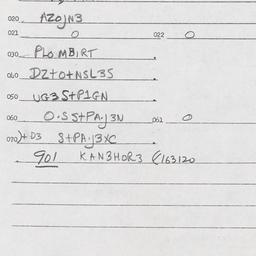 020 AZOJN3
021 0 022 0
030 PLOMBIRT
040 DZ+O+NSL3S
050 UG3S+P1GN
060 O·SS+PA·J3N 061 0
070)+D3 S+PA·J3XC
901 KAN3HOR3 (163120